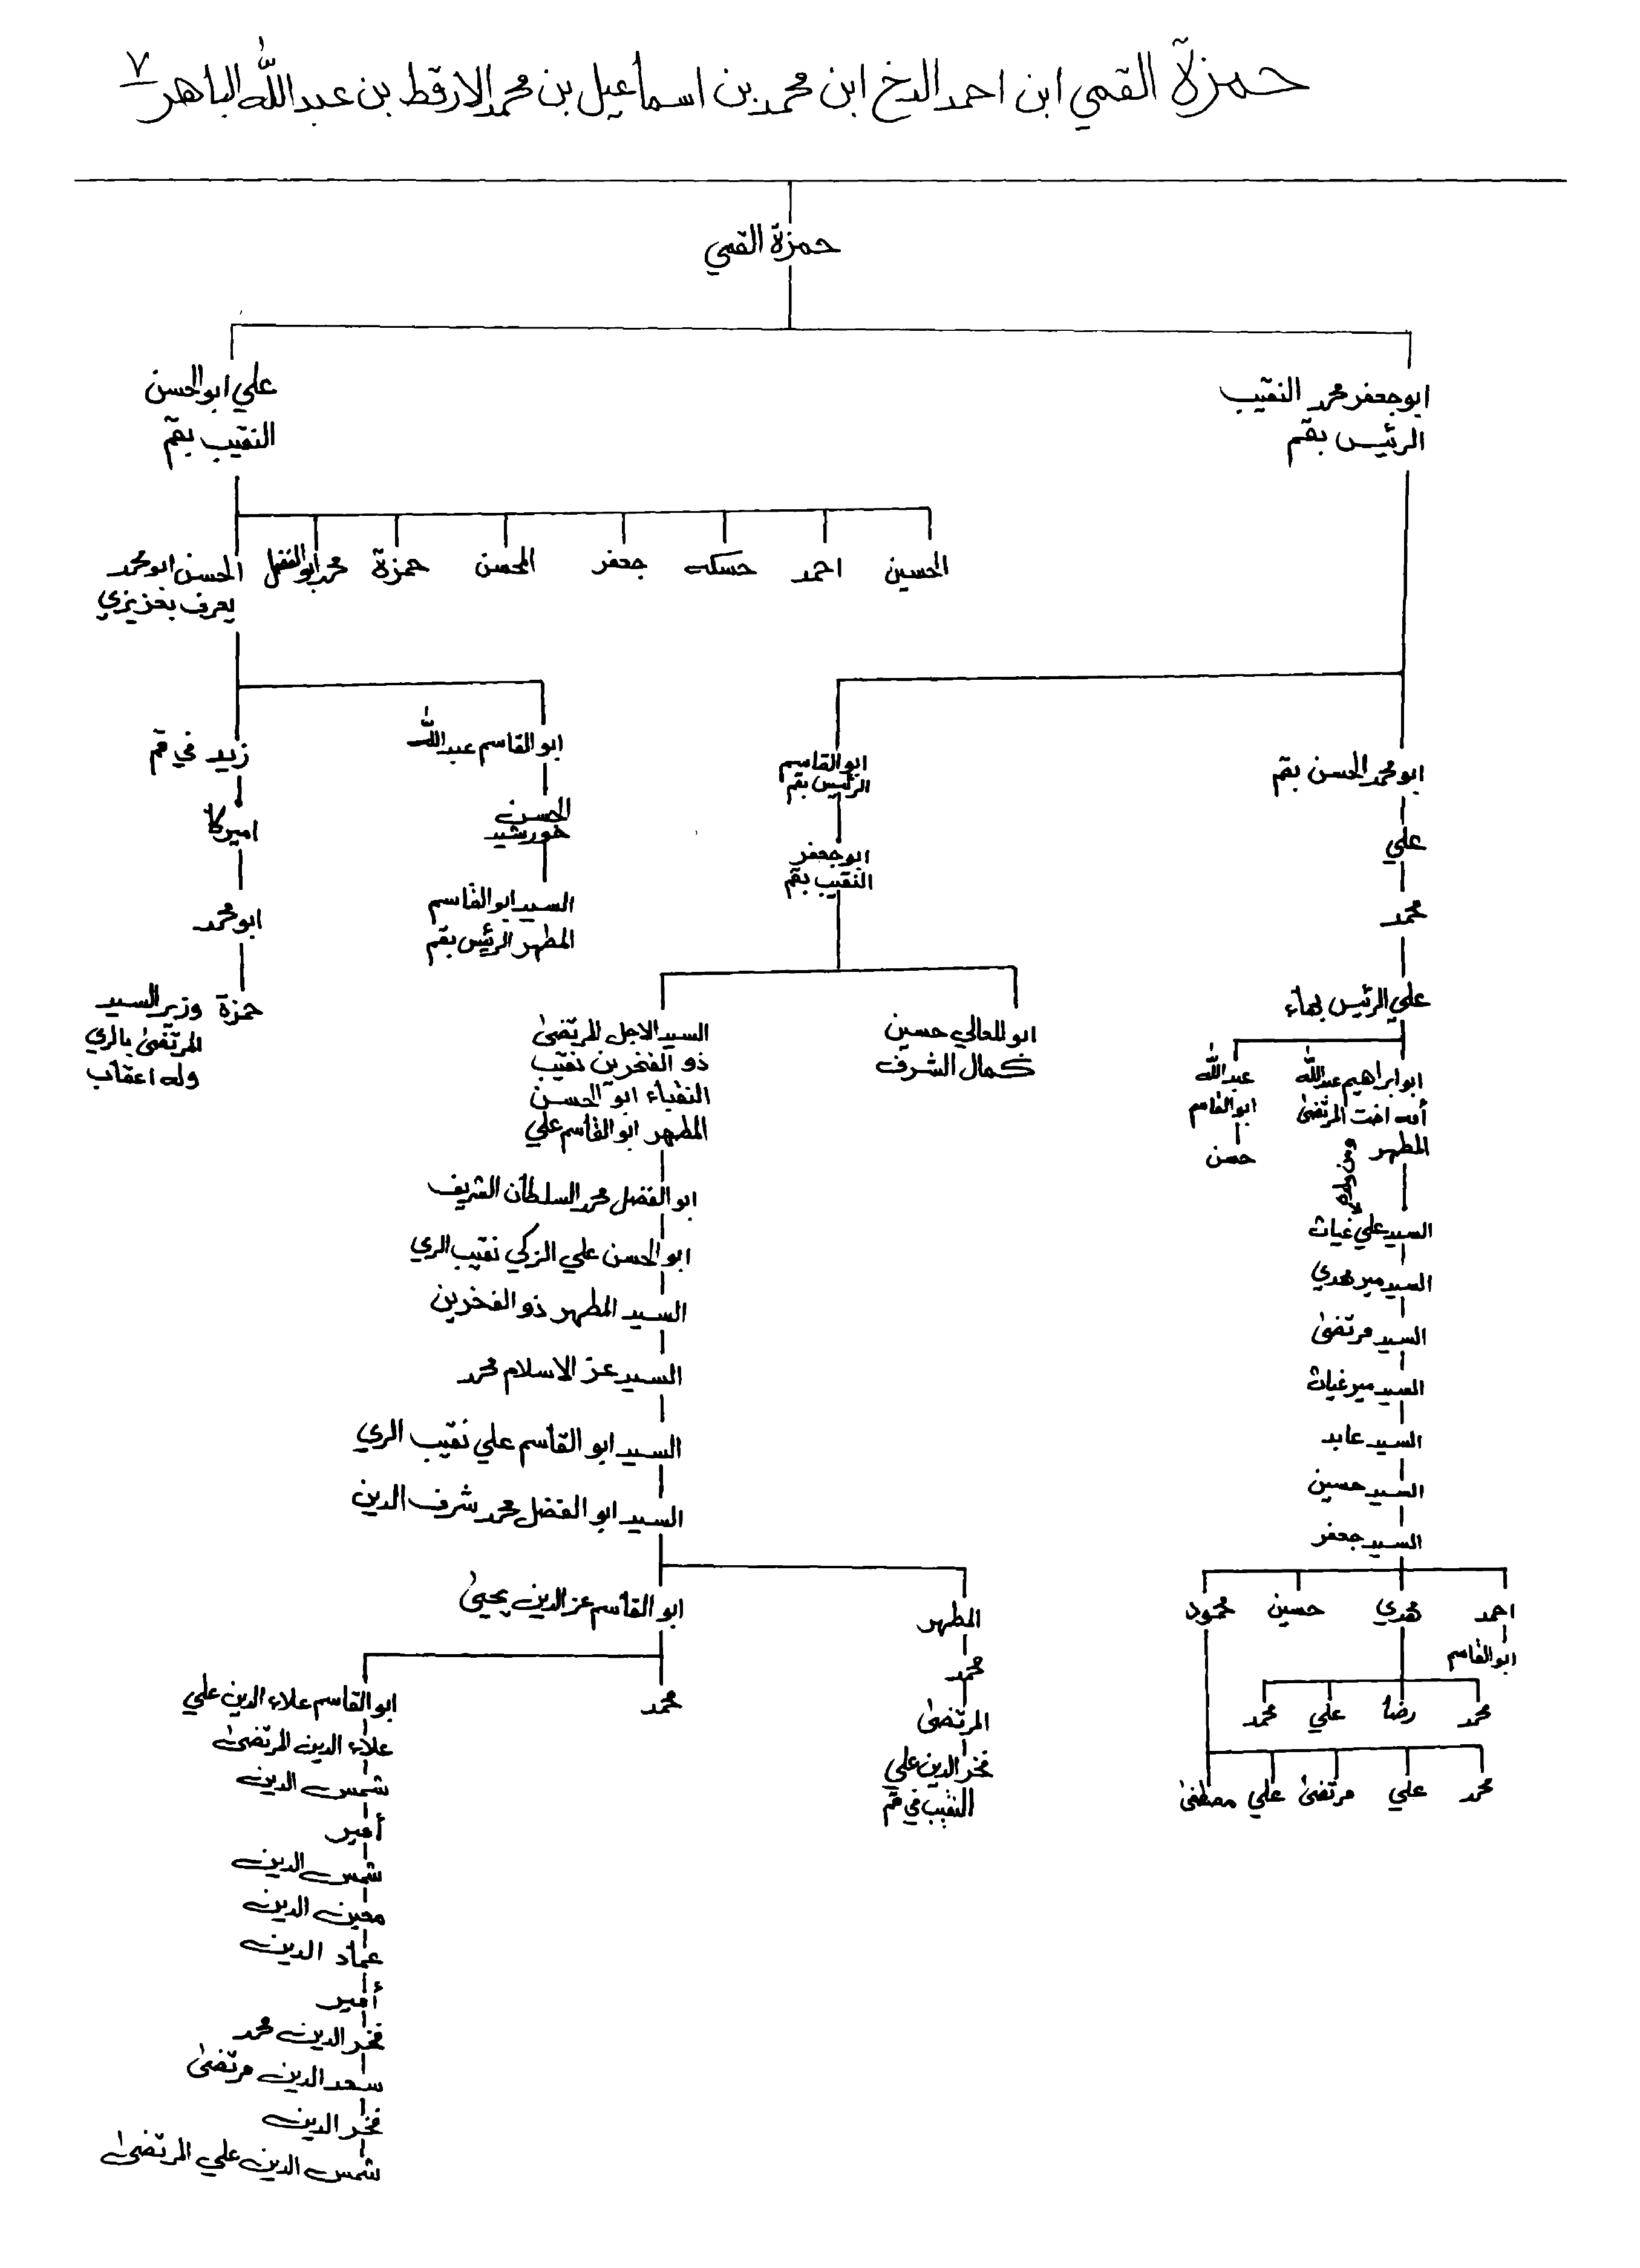 حمزة القمي ابن احمد الدخ ابن محمد بن اسماعيل بن محمد الارقط بن عبدالله الباهر ٧
حمزة القمي
ابوجعفر محمد النقيب
الرئيس بقم
علي ابوالحسن
النقيب بقم
الحسين
احمد
حسكه
جعفر
المحسن
حمزة
محمد ابوالفضل
الحسن ابومحمد
يعرف بغزيزي
ابومحمد الحسن بقم
علي
محمد
علي الرئيس بهاء
ابوابراهيم عبدالله
أمه اخت المرتضى
المطهر
ومن ولده
عبدالله
ابوالقاسم
حسن
السيد علي غياث
السيد مير مهدي
السيد مرتضى
السيد مير غياث
السيد عابد
السيد حسين
السيد جعفر
احمد
مهدي
حسين
محمود
ابوالقاسم
محمد
رضا
علي
محمد
محمد
علي
مرتضى
علي
مصطفى
ابوالقاسم
الرئيس بقم
ابوجعفر
النقيب بقم
ابوالمعالي حسين
كمال الشرف
السيد الاجل المرتضى
ذو الفخرين نقيب
النقباء ابو الحسن
المطهر ابوالقاسم علي
ابوالفضل محمد السلطان الشريف
ابوالحسن علي الزكي نقيب الري
السيد المطهر ذو الفخرين
السيد عز الاسلام محمد
السيد ابو القاسم علي نقيب الري
السيد ابو الفضل محمد شرف الدين
المطهر
محمد
المرتضى
فخر الدين علي
النقيب في قم
ابو القاسم عز الدين يحيى
محمد
ابوالقاسم علاء الدين علي
علاء الدين المرتضى
شمس الدين
أمير
شمس الدين
معين الدين
عماد الدين
أمير
فخر الدين محمد
سعد الدين مرتضى
فخر الدين
شمس الدين علي المرتضى
ابو القاسم عبدالله
الحسن
خورشيد
السيد ابوالقاسم
المطهر الرئيس بقم
زيد في قم
اميركا
ابومحمد
حمزة وزير السيد
المرتضى بالري
وله اعقاب